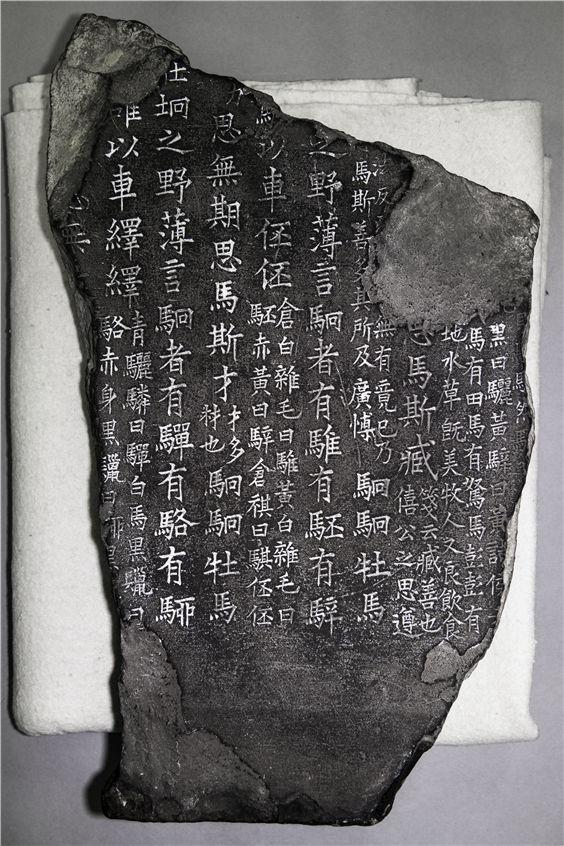 黑曰驪黃騂曰黃諸侯
馬有田馬有駑馬彭彭有
地水草旣美牧人又良飲食
思馬斯臧箋云臧善也
僖公之思遵
無有竟已乃
馬斯善多其所及廣愽駉駉牡馬
之野薄言駉者有騅有駓有騂
以車伾伾倉白雜毛曰騅黃白雜毛曰
駓赤黃曰騂倉祺曰騏伾伾
思無期思馬斯才才多
材也駉駉牡馬
在坰之野薄言駉者有驒有駱有駵
以車繹繹青驪驎曰驒白馬黑鬣曰
駱赤身黑鬣曰駵黑